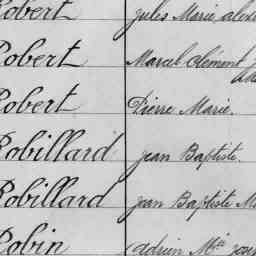 Robert Jules Marie alex
Robert Marcel Clément J
Robert Pierre Marie.
Robillard Jean Baptiste.
Robillard Jean Baptiste M
Robin Adrien Mie Jose